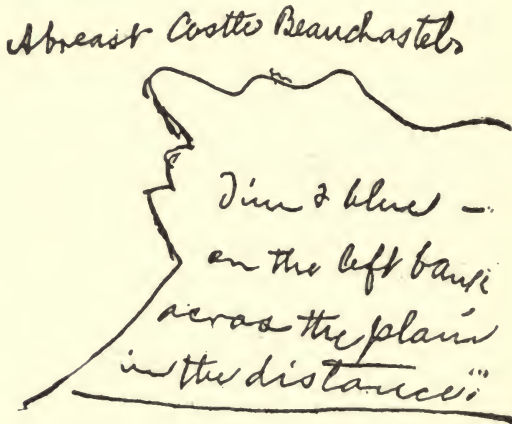 Abreast Castle Beauchastel.
Dim & blue –
on the left bank
across the plain
in the distance.